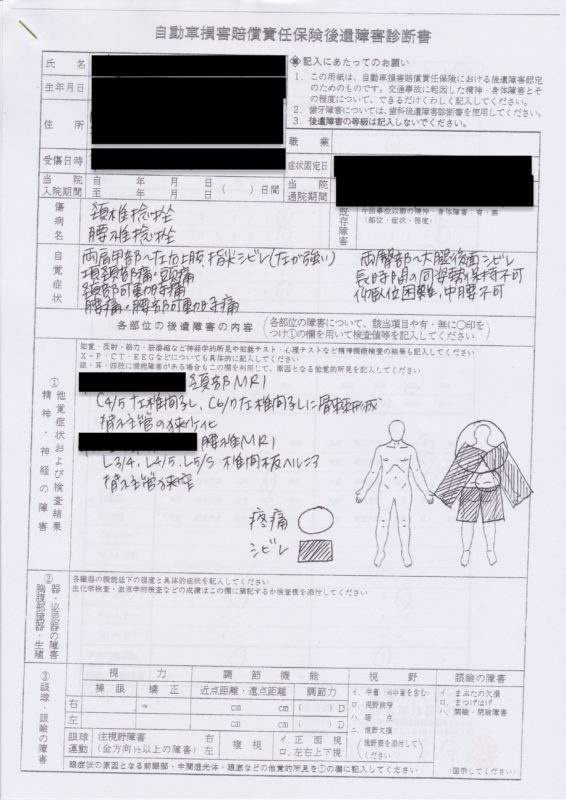 自動車損害賠償責任保険後遺障害診断書
氏名
生年月日
住所
受傷日時
当院入院期間
自 年 月 日
至 年 月 日
( )日間
■記入にあたってのお願い
1. この用紙は、自動車損害賠償責任保険における後遺障害認定
のためのものです。交通事故に起因した精神・身体障害とそ
の程度について、できるだけくわしく記入してください。
2. 歯牙障害については、歯科後遺障害診断書を使用してください。
3. 後遺障害の等級は記入しないでください。
職業
症状固定日
当院通院期間
傷病名
頚椎捻挫
腰椎捻挫
既存障害
今回事故以前の精神・身体障害:有・無
(部位・症状・程度)
自覚症状
両肩甲部〜左右上肢、指尖シビレ(左が強い)
項頚部痛・頭痛
頚部可動時痛
腰痛・腰部可動時痛
両臀部〜大腿後面シビレ
長時間の同姿勢保持不可
仰臥位困難、中腰不可
各部位の後遺障害の内容
各部位の障害について、該当項目や有・無に○印を
つけ①の欄を用いて検査値等を記入してください
①精神・神経の障害
他覚症状および検査結果
知覚・反射・筋力・筋萎縮など神経学的所見や知能テスト・心理テストなど精神機能検査の結果も記入してください
X-P・CT・EEGなどについても具体的に記入してください
眼・耳・四肢に機能障害がある場合もこの欄を利用して、原因となる他覚的所見を記入してください
頚部MRI
C4/5 左椎間孔、C6/7左椎間孔に骨棘形成
脊柱管の狭小化
腰椎MRI
L3/4、L4/5、L5/S 椎間板ヘルニア
脊柱管狭窄
疼痛
シビレ
②胸腹部臓器・生殖器・泌尿器の障害
各臓器の機能低下の程度と具体的症状を記入してください
生化学検査・血液学的検査などの成績はこの欄に簡記するか検査表を添付してください
③眼球・眼瞼の障害
視力 調節機能 視野 眼瞼の障害
裸眼 矯正 近点距離・遠点距離 調節力
イ. 半盲(¼半盲を含む)
ロ. 視野狭窄
ハ. 暗点
ニ. 視野欠損
(視野表を添付してください)
イ. まぶたの欠損
ロ. まつげはげ
ハ. 開瞼・閉瞼障害
右 cm cm ( )D
左 cm cm ( )D
眼球運動
注視野障害
(全方向½以上の障害)
右
左
複視
イ. 正面視
ロ. 左右上下視
眼症状の原因となる前眼部・中間透光体・眼底などの他覚的所見を①の欄に記入してください
(図示してください)